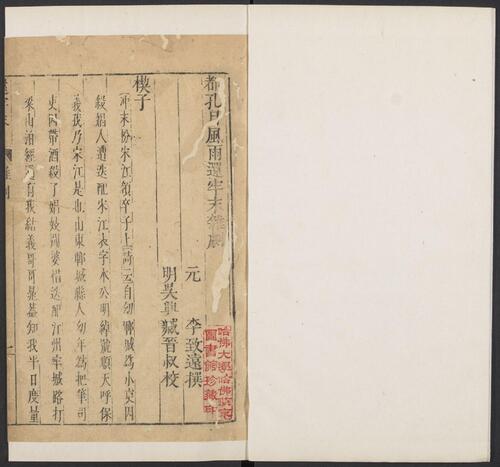 都孔目風雨還牢末雜劇
元 李致遠撰
明吳興臧晉叔校
楔子
冲末扮宋江領卒子上詩云自幼鄆城爲小吏因
殺娼人遭迭配宋江表字本公明綽號順天呼保
義我乃宋江是也山東鄆城縣人幼年爲把筆司
吏因帶酒殺了娼妓閻婆惜迭配江州牢城路打
梁山泊經過有我結義哥哥晁蓋知我平日度量
還牢末
雜劇
一
哈佛大學哈佛燕京
圖書館珍藏印